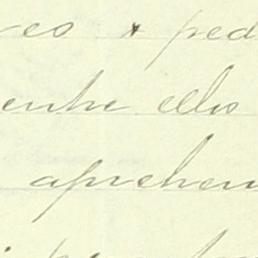 ves * ped
entre ellos
aprehen